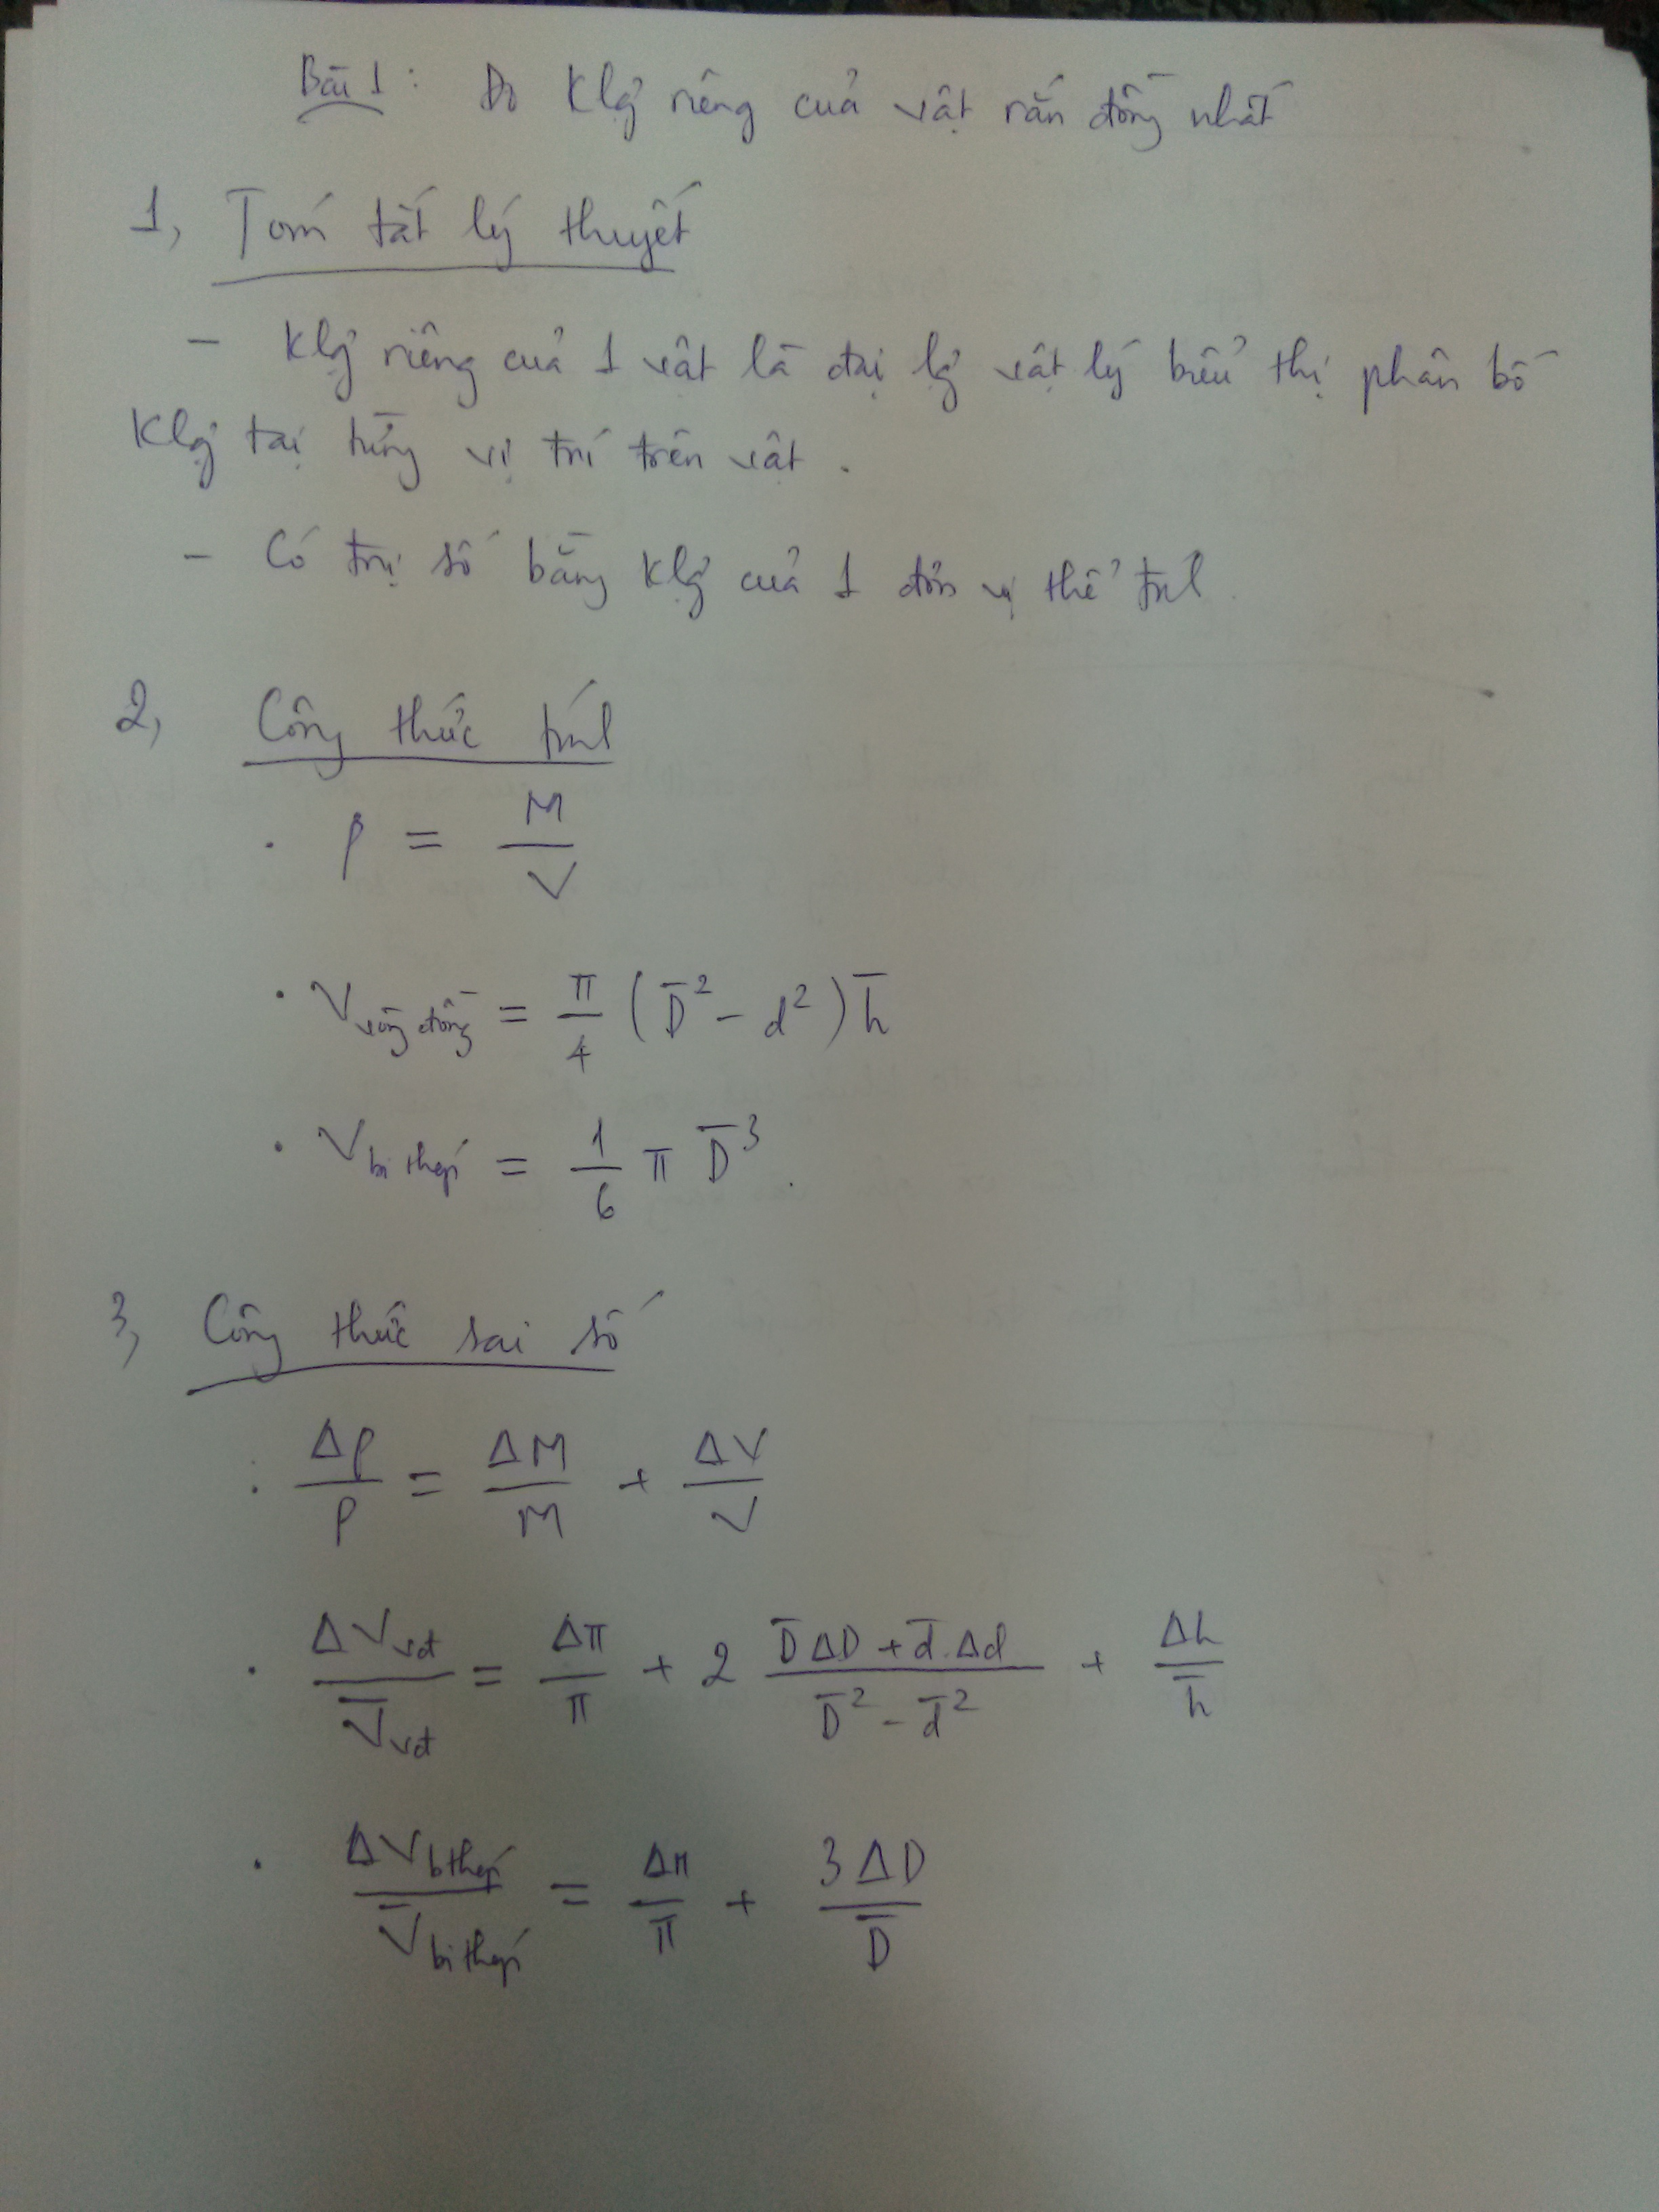 Bài 1: Đo Klg riêng của vật rắn đồng nhất
1, Tóm tắt lý thuyết
- Klg riêng của 1 vật là đại lg vật lý biểu thị phân bố
Klg tại từng vị trí trên vật.
- Có trị số bằng Klg của 1 đơn vị thể tích
2, Công thức tính
. ρ = M/V
. V vòng đồng = π/4 (D̅² - d²) h̅
. V bi thép = 1/6 π D̅³.
3, Công thức sai số
. Δρ/ρ = ΔM/M + ΔV/V
. ΔVvđ/V̅vđ = Δπ/π + 2 (D̅ΔD + d̅.Δd)/(D̅² - d̅²) + Δh/h̅
. ΔV b thép/V̅ bi thép = Δπ/π + 3ΔD/D̅